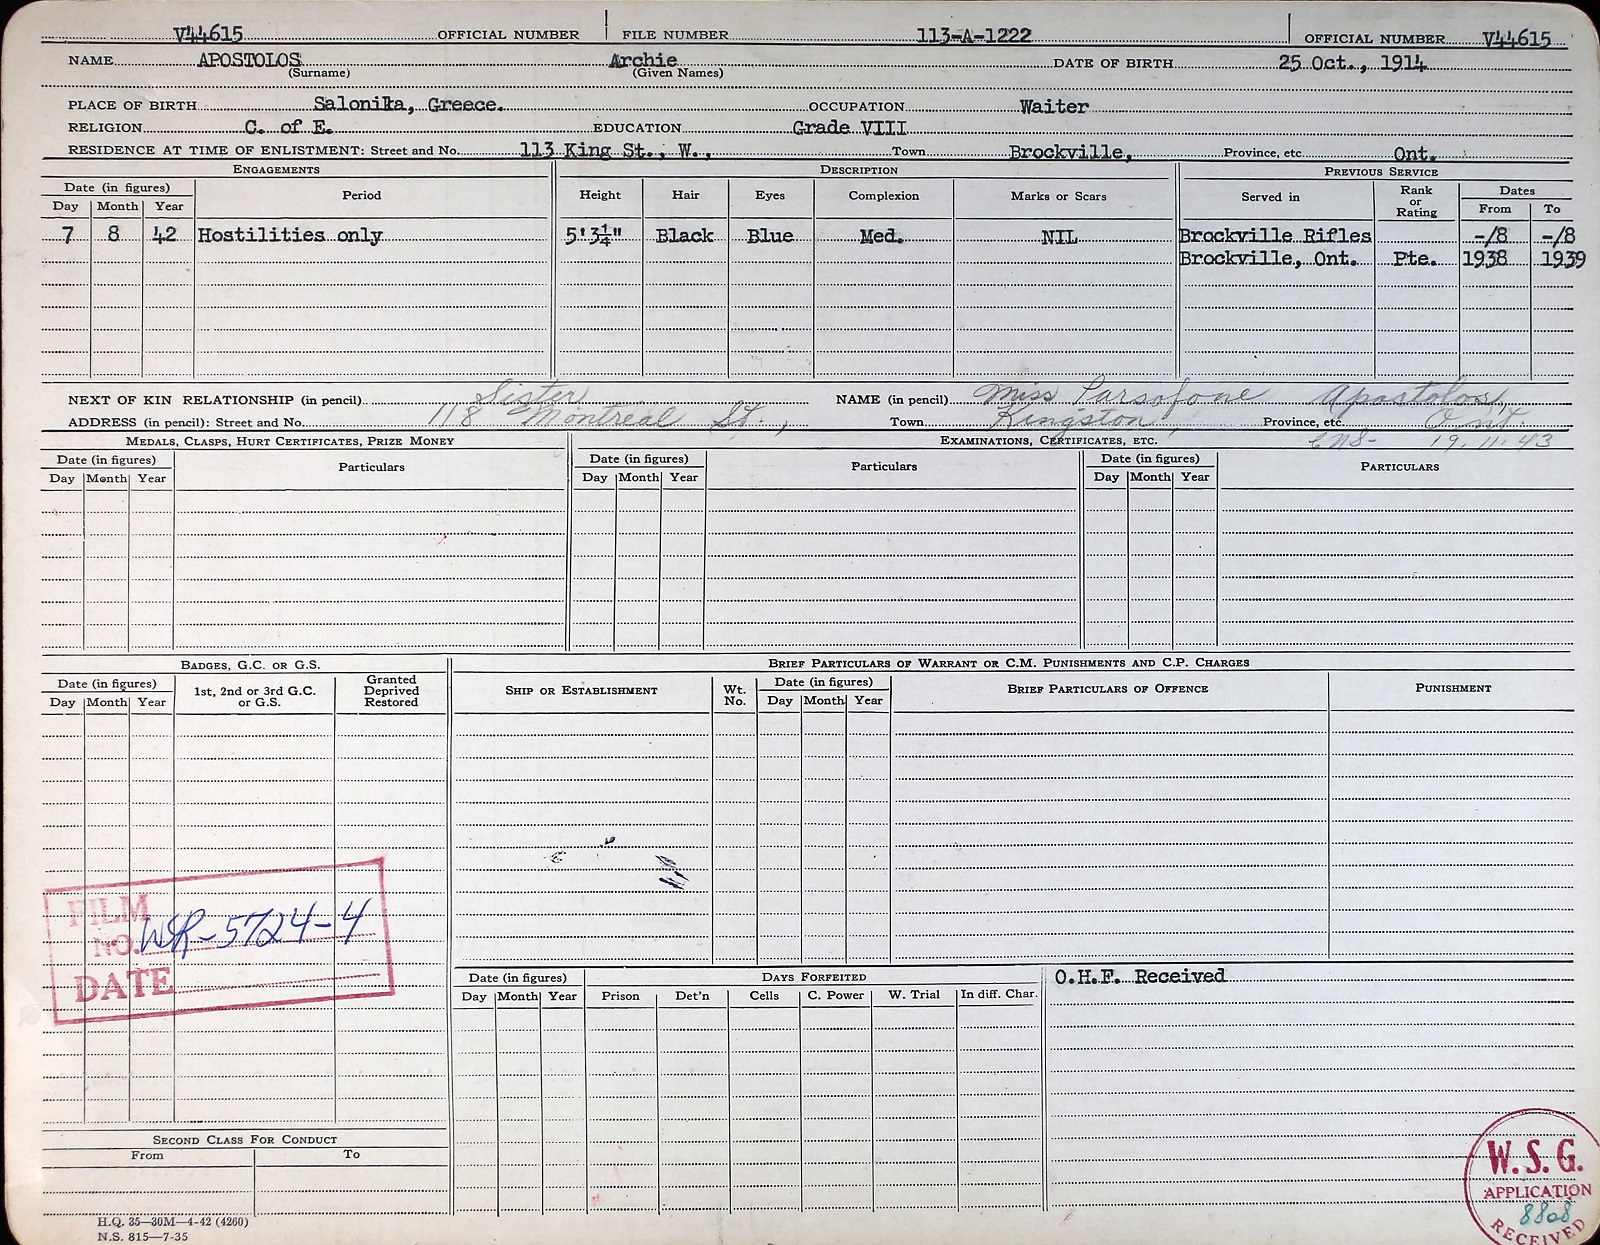 V44615 OFFICIAL NUMBER FILE NUMBER 113-A-1222 OFFICIAL NUMBER V44615
NAME APOSTOLOS Archie DATE OF BIRTH 25 Oct., 1914
(Surname) (Given Names)
PLACE OF BIRTH Salonika, Greece. OCCUPATION Waiter
RELIGION C. of E. EDUCATION Grade VIII
RESIDENCE AT TIME OF ENLISTMENT: Street and No. 113 King St., W., Town Brockville, Province, etc. Ont.
ENGAGEMENTS DESCRIPTION PREVIOUS SERVICE
Date (in figures) Period Height Hair Eyes Complexion Marks or Scars Served in Rank or Rating Dates
Day Month Year From To
7 8 42 Hostilities only 5'3¼" Black Blue Med. NIL Brockville Rifles -/8 -/8
Brockville, Ont. Pte. 1938 1939
NEXT OF KIN RELATIONSHIP (in pencil) Sister NAME (in pencil) Miss Parsofone Apostolos,
ADDRESS (in pencil): Street and No. 118 Montreal St., Town Kingston, Province, etc. Ont.
19.11.43
MEDALS, CLASPS, HURT CERTIFICATES, PRIZE MONEY EXAMINATIONS, CERTIFICATES, ETC.
Date (in figures) Particulars Date (in figures) Particulars Date (in figures) PARTICULARS
Day Month Year Day Month Year Day Month Year
BADGES, G.C. OR G.S. BRIEF PARTICULARS OF WARRANT OR C.M. PUNISHMENTS AND C.P. CHARGES
Date (in figures) 1st, 2nd or 3rd G.C. or G.S. Granted Deprived Restored SHIP OR ESTABLISHMENT Wt. No. Date (in figures) BRIEF PARTICULARS OF OFFENCE PUNISHMENT
Day Month Year Day Month Year
FILM
NO. WSR-5724-4
DATE
Date (in figures) DAYS FORFEITED O.H.F. Received
Day Month Year Prison Det'n Cells C. Power W. Trial In diff. Char.
SECOND CLASS FOR CONDUCT
From To
W.S.G.
APPLICATION
8808
RECEIVED
H.Q. 35—30M—4-42 (4260)
N.S. 815—7-35